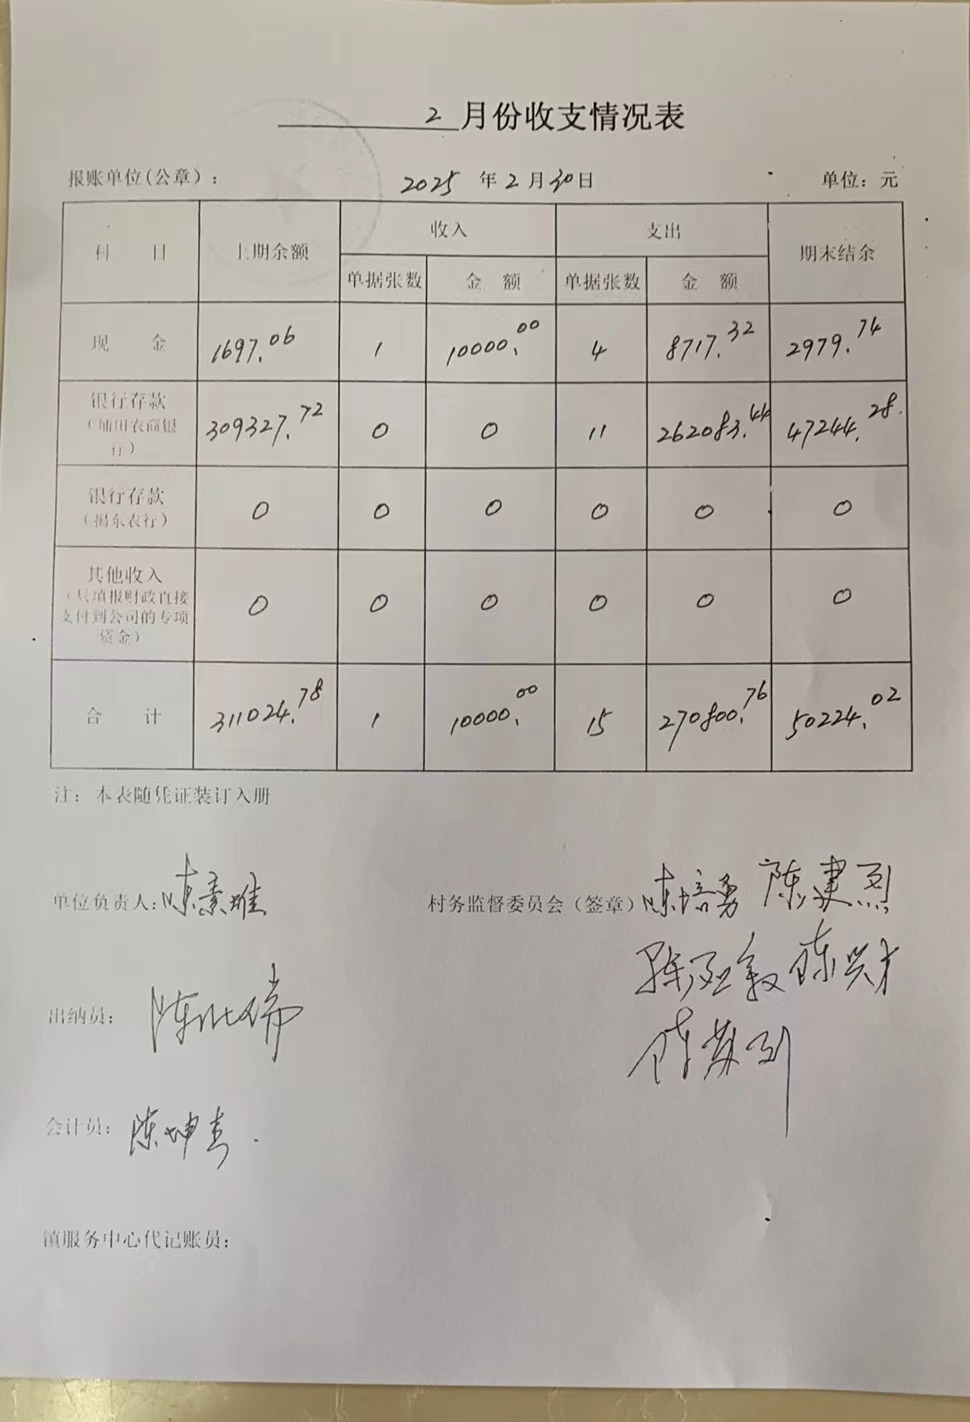 2月份收支情况表
报账单位(公章): 2025年2月30日 单位：元
科 目 上期余额 收入 支出 期末结余
单据张数 金 额 单据张数 金 额
现 金 1697.06 1 10000.00 4 8717.32 2979.74
银行存款 309327.72 0 0 11 262083.44 47244.28
农商银
行)
银行存款 0 0 0 0 0 0
其他收入 0 0 0 0 0 0
(只填报财政直接
支付到公司的专项
资金)
合 计 311024.78 1 10000.00 15 270800.76 50224.02
注：本表随凭证装订入册
单位负责人: 陈 村务监督委员会（签章） 陈培勇 陈建烈
陈 陈兴才
出纳员： 陈 陈
会计员： 陈坤
镇服务中心代记账员：